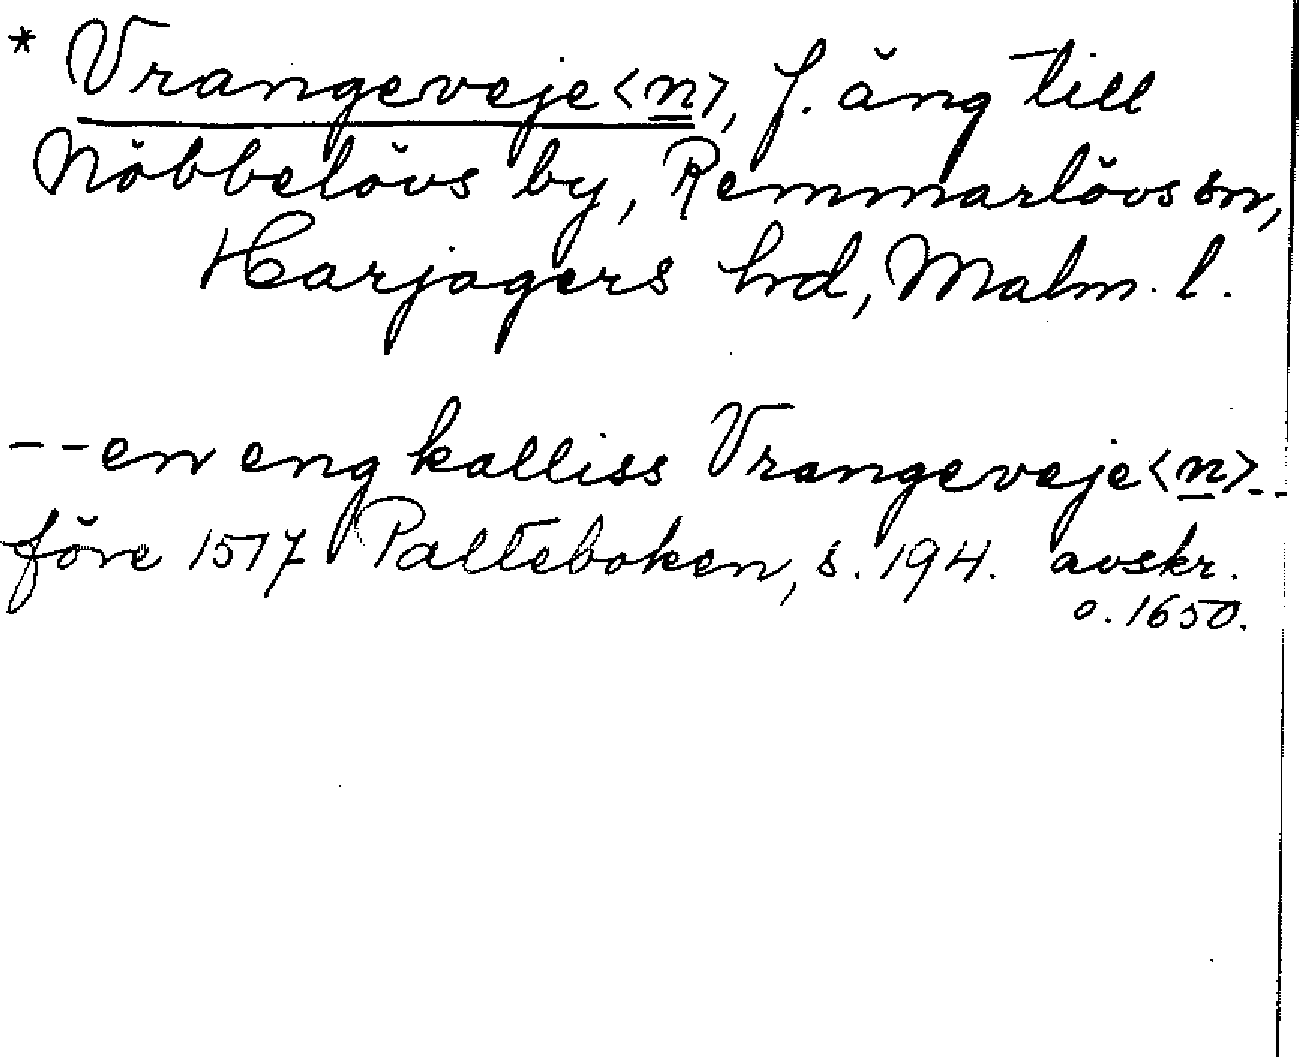 * Vrangeveje<n>, f. äng till
Nöbbelövs by, Remmarlövs sn,
Harjagers hd, Malm. l.
--en eng kalliss Vrangeveje<n>--
före 1517 Palteboken, s. 194. avskr.
o. 1650.